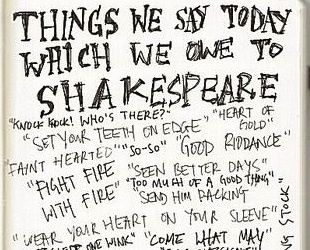 THINGS WE SAY TODAY
WHICH WE OWE TO
SHAKESPEARE
"KNOCK KNOCK! WHO'S THERE?" "HEART OF GOLD"
"SET YOUR TEETH ON EDGE"
"FAINT HEARTED" "SO-SO" "GOOD RIDDANCE"
"FIGHT FIRE WITH FIRE" "SEEN BETTER DAYS"
"TOO MUCH OF A GOOD THING"
"SEND HIM PACKING"
"WEAR YOUR HEART ON YOUR SLEEVE"
ONE WINK" "COME WHAT MAY"
STOCK"